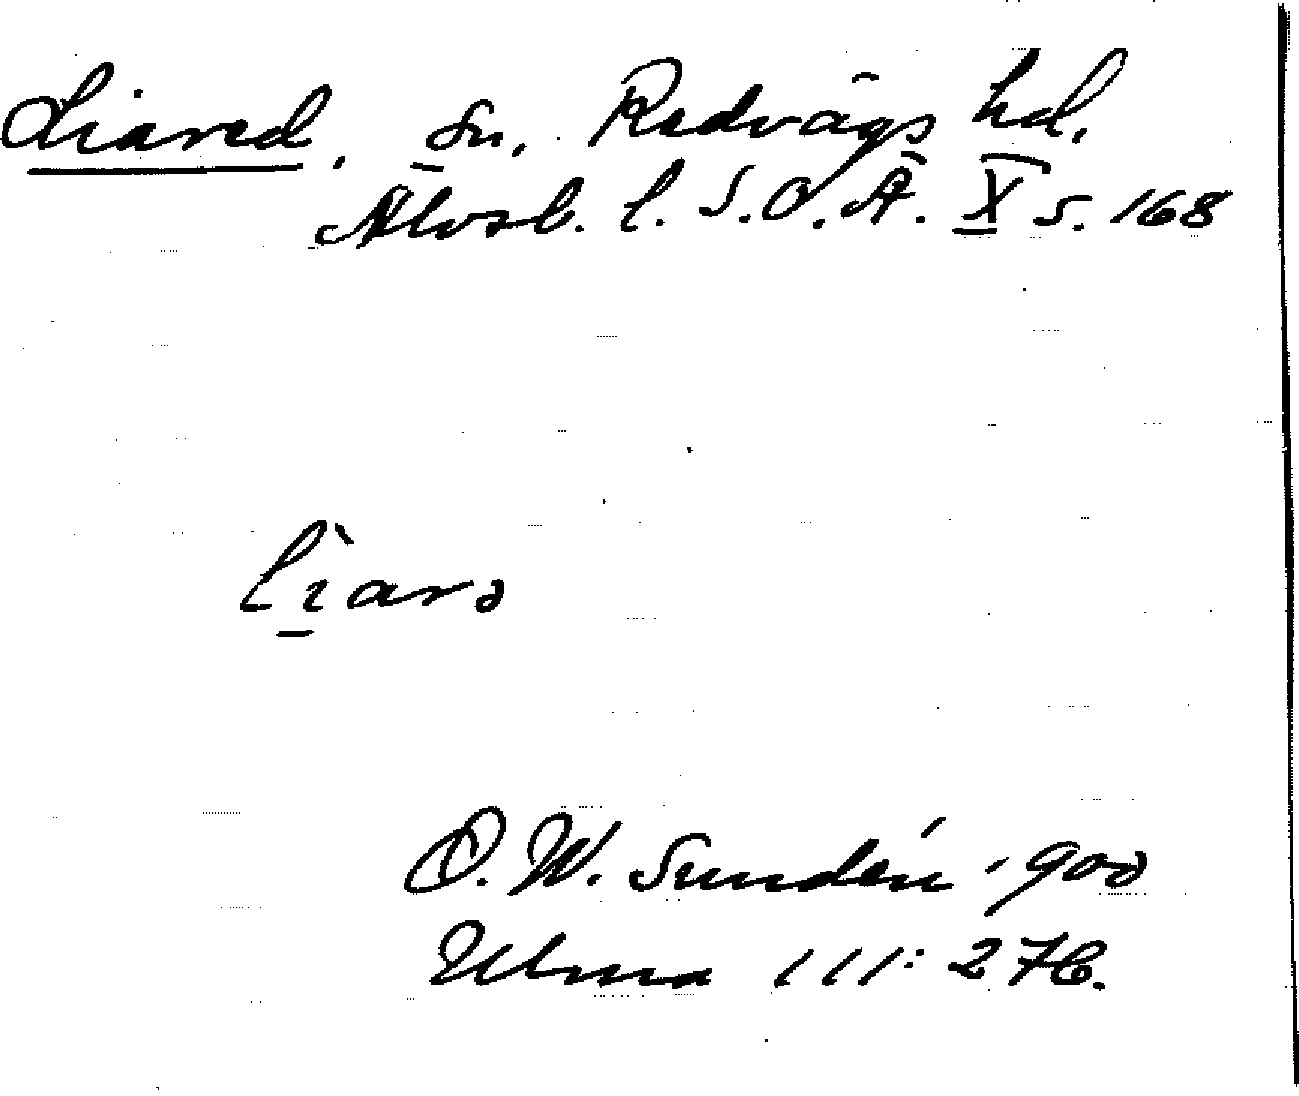 Liared, sn, Redvägs hd.
Älvsb. l. S.O.Ä. X s. 168
lìarə
O. W. Sundén ·900
Ulma 111: 276.